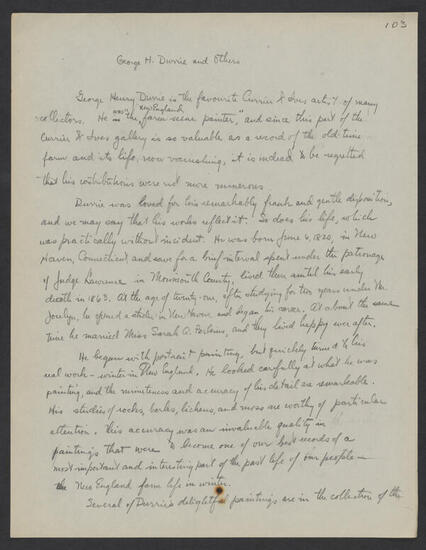 103
George H. Durrie and Others
George Henry Durrie is the favourite Currier & Ives artist of many
collectors. He was the New England "farm scene painter," and since this part of the
Currier & Ives gallery is so valuable as a record of the old-time
farm and its life, now vanishing, it is indeed to be regretted
that his contributions were not more numerous
Durrie was loved for his remarkably frank and gentle disposition,
and we may say that his works reflect it. So does his life, which
was practically without incident. He was born June 6, 1820, in New
Haven, Connecticut, and save for a brief interval spent under the patronage
of Judge Lawrence in Monmouth County, lived there until his early
death in 1863. At the age of twenty-one, after studying for two years under Mr.
Jocelyn, he opened a studio in New Haven and began his career. At about the same
time he married Miss Sarah A. Perkins, and they lived happy ever after.
He began with portrait painting, but quickly turned to his
real work — winter in New England. He looked carefully at what he was
painting, and the minuteness and accuracy of his detail is remarkable.
His studies of rocks, barks, lichens, and moss are worthy of particular
attention. This accuracy was an invaluable quality in
paintings that were to become one of our best records of a
most important and interesting part of the past life of our people —
the New England farm life in winter.
Several of Durrie's delightful paintings are in the collection of the